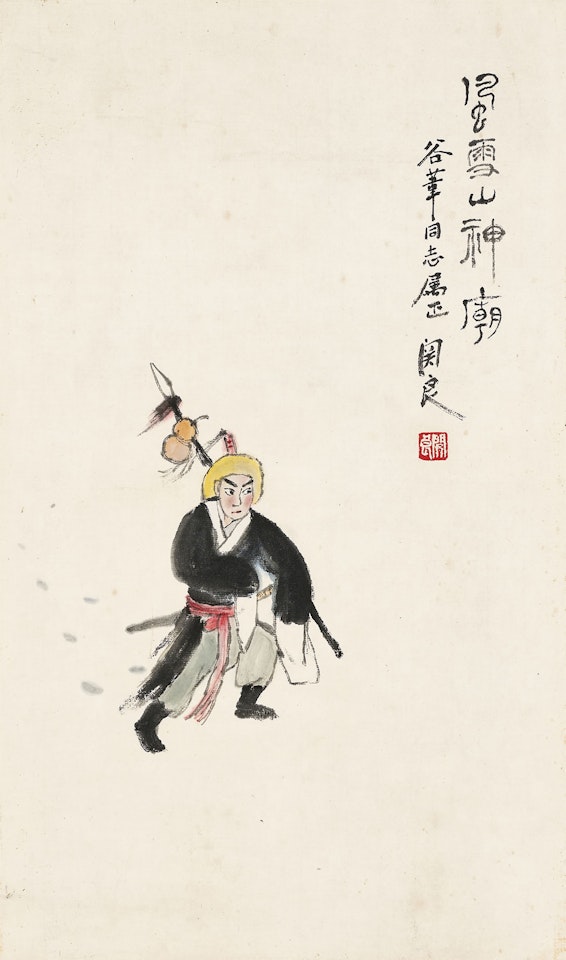 風雪山神廟
谷葦同志属正 関良
關良